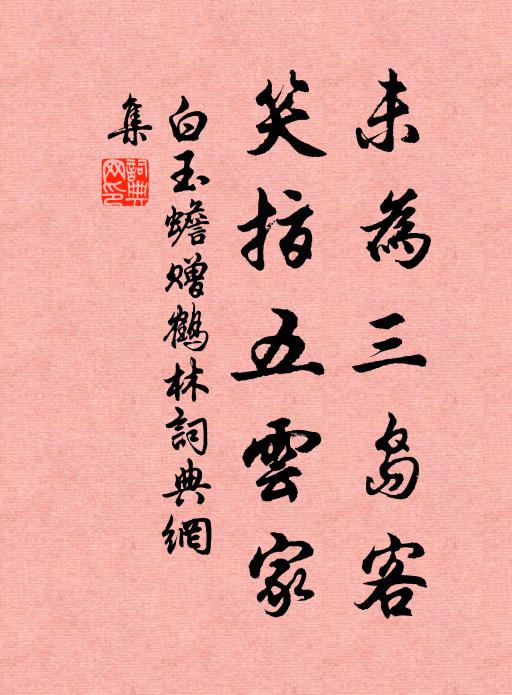 未為三島客
笑指五雲家
白玉蟾贈鶴林詞典網
集
詞典
网印